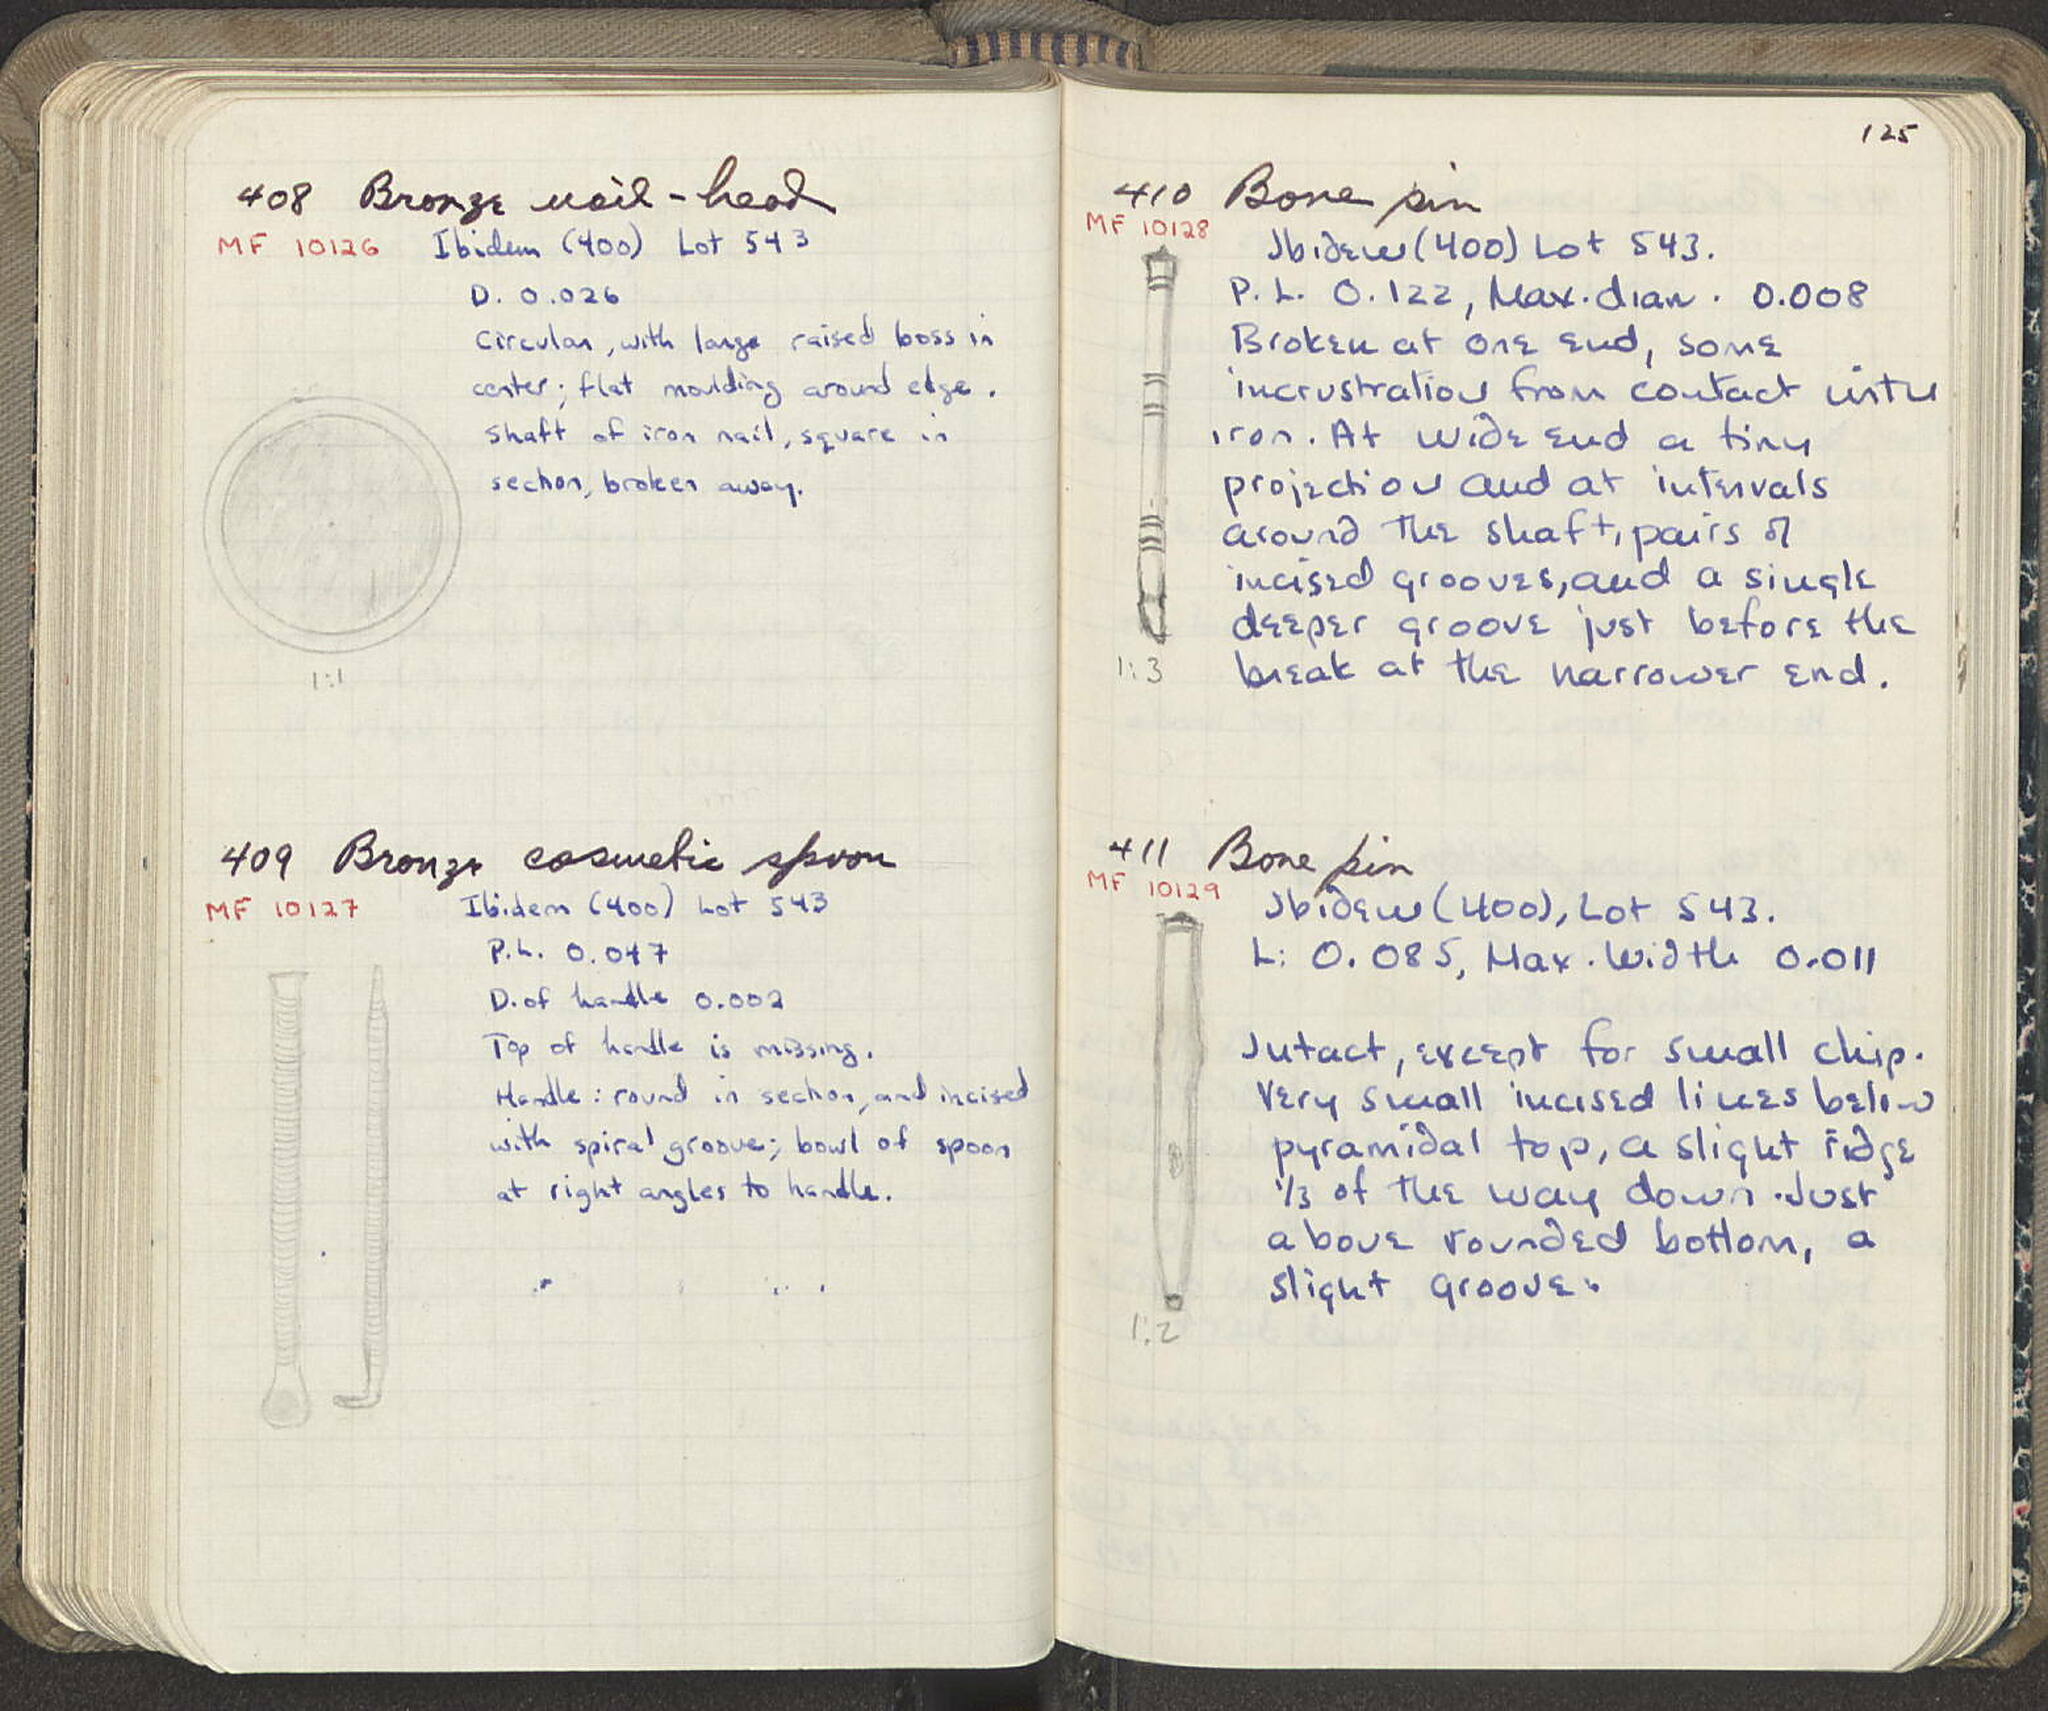 408 Bronze nail-head
MF 10126 Ibidem (400) Lot 543
D. 0.026
Circular, with large raised boss in
center; flat moulding around edge.
Shaft of iron nail, square in
section, broken away.
1:1
409 Bronze cosmetic spoon
MF 10127 Ibidem (400) Lot 543
P.L. 0.047
D. of handle 0.002
Top of handle is missing.
Handle: round in section, and incised
with spiral groove; bowl of spoon
at right angles to handle.
125
410 Bone pin
MF 10128
Ibidem (400) Lot 543.
P.L. 0.122, Max. diam. 0.008
Broken at one end, some
incrustration from contact with
iron. At wide end a tiny
projection and at intervals
around the shaft, pairs of
incised grooves, and a single
deeper groove just before the
break at the narrower end.
1:3
411 Bone pin
MF 10129
Ibidem (400), Lot 543.
L: 0.085, Max. Width 0.011
Intact, except for small chip.
Very small incised lines below
pyramidal top, a slight ridge
1/3 of the way down. Just
above rounded bottom, a
slight groove.
1:2